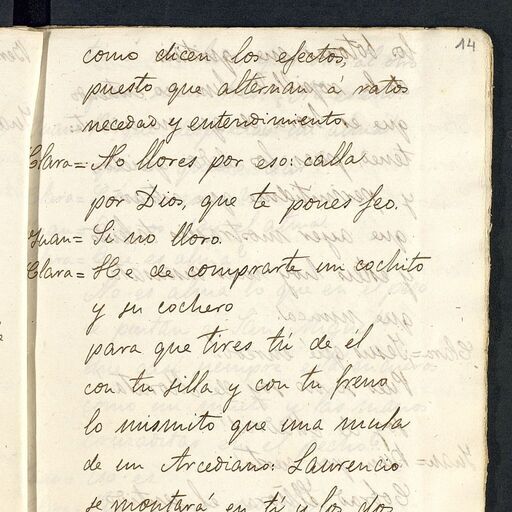 14
como dicen los efectos,
puesto que alternan á ratos
necedad y entendimiento.
Clara = No llores por eso: calla
por Dios, que te pones feo.
Juan = Si no lloro.
Clara = He de comprarte un cochito
y su cochero
para que tires tú de él
con tu silla y con tu freno
lo mismito que una mula
de un Arcediano: Laurencio
se montará en tí y los dos